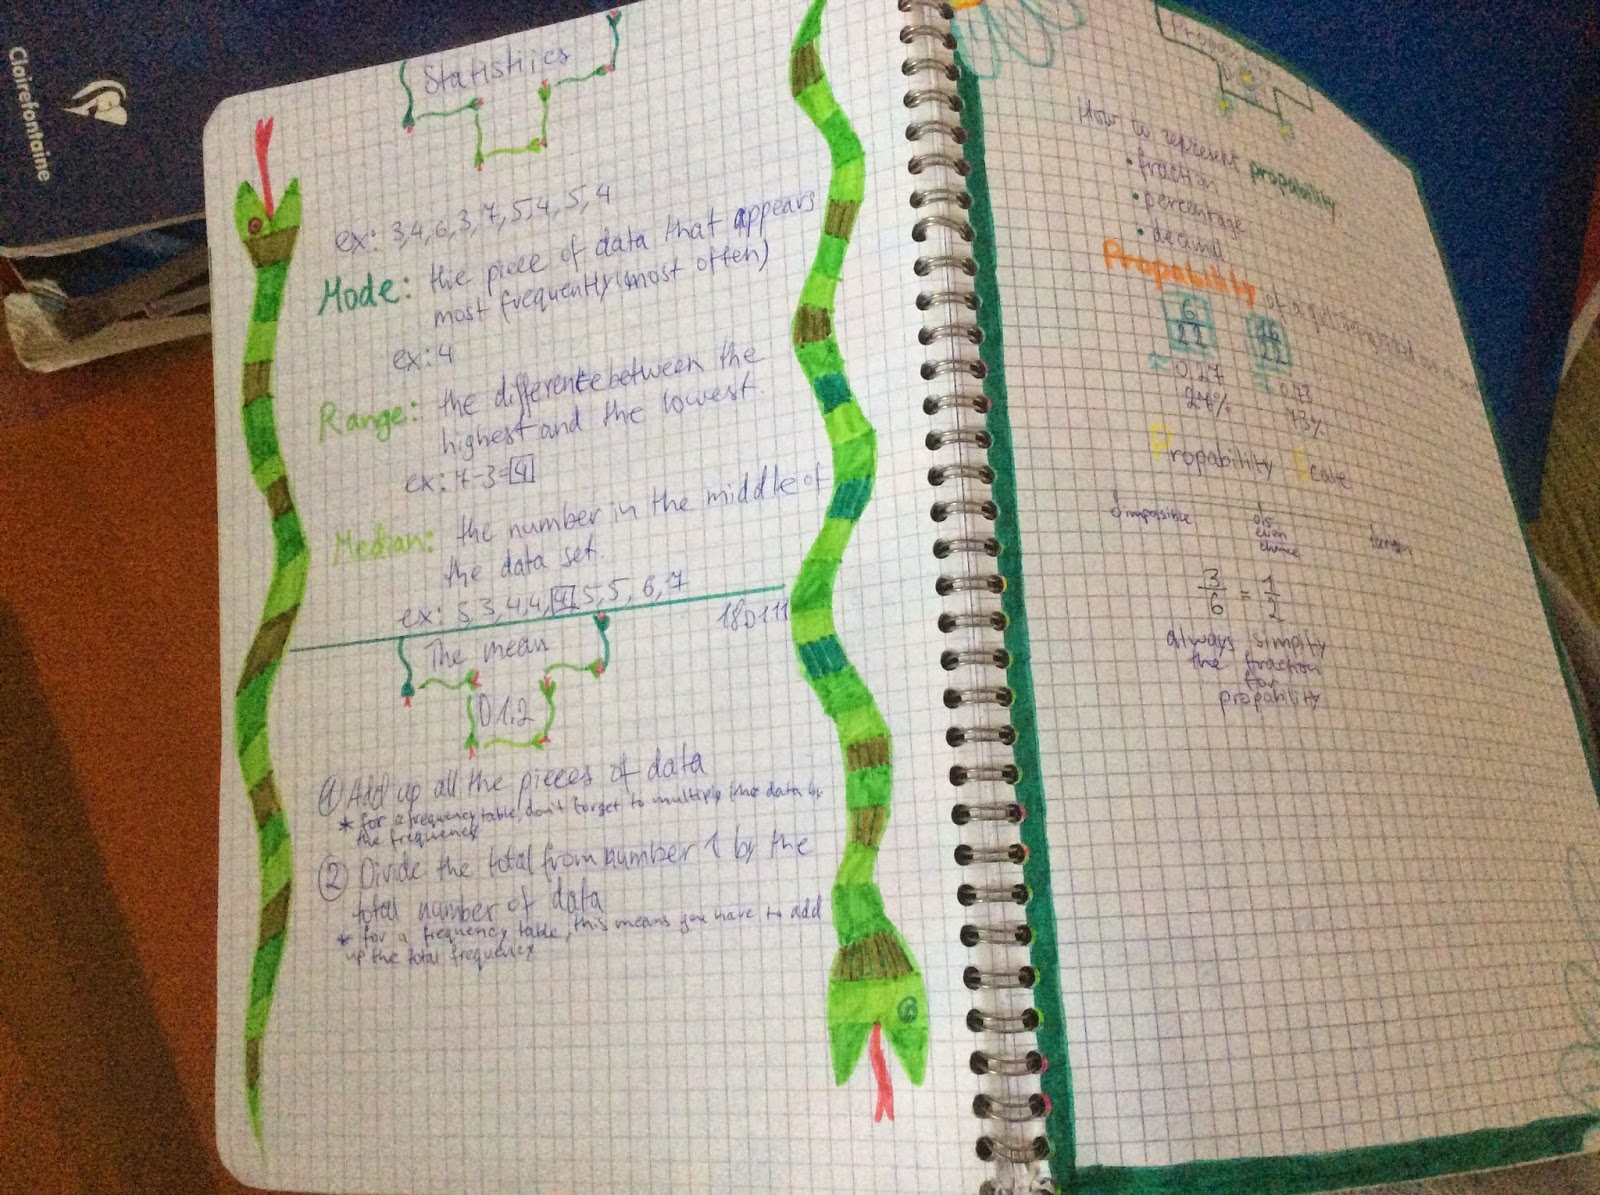 Clairefontaine
Statistiics
ex: 3,4,6,3,7,5,4,5,4
Mode: the piece of data that appears
most frequently(most often)
ex: 4
Range: the difference between the
highest and the lowest.
ex: 7-3=4
Median: the number in the middle of
the data set.
ex: 3,3,4,4,4,5,5,6,7
The mean
D1.2
1 Add up all the pieces of data
* for a frequency table, don't forget to multiply the data by
the frequency
2 Divide the total from number 1 by the
total number of data
* for a frequency table, this means you have to add
up the total frequency
How to represent propability
• fraction
• percentage
• decimal
Propability of a
6/22 16/22
= 0,27 = 0,73
27% 73%
Propability Scale
0 impossible 0,5 even chance
3/6 = 1/2
always simplify
the fraction
for
propability